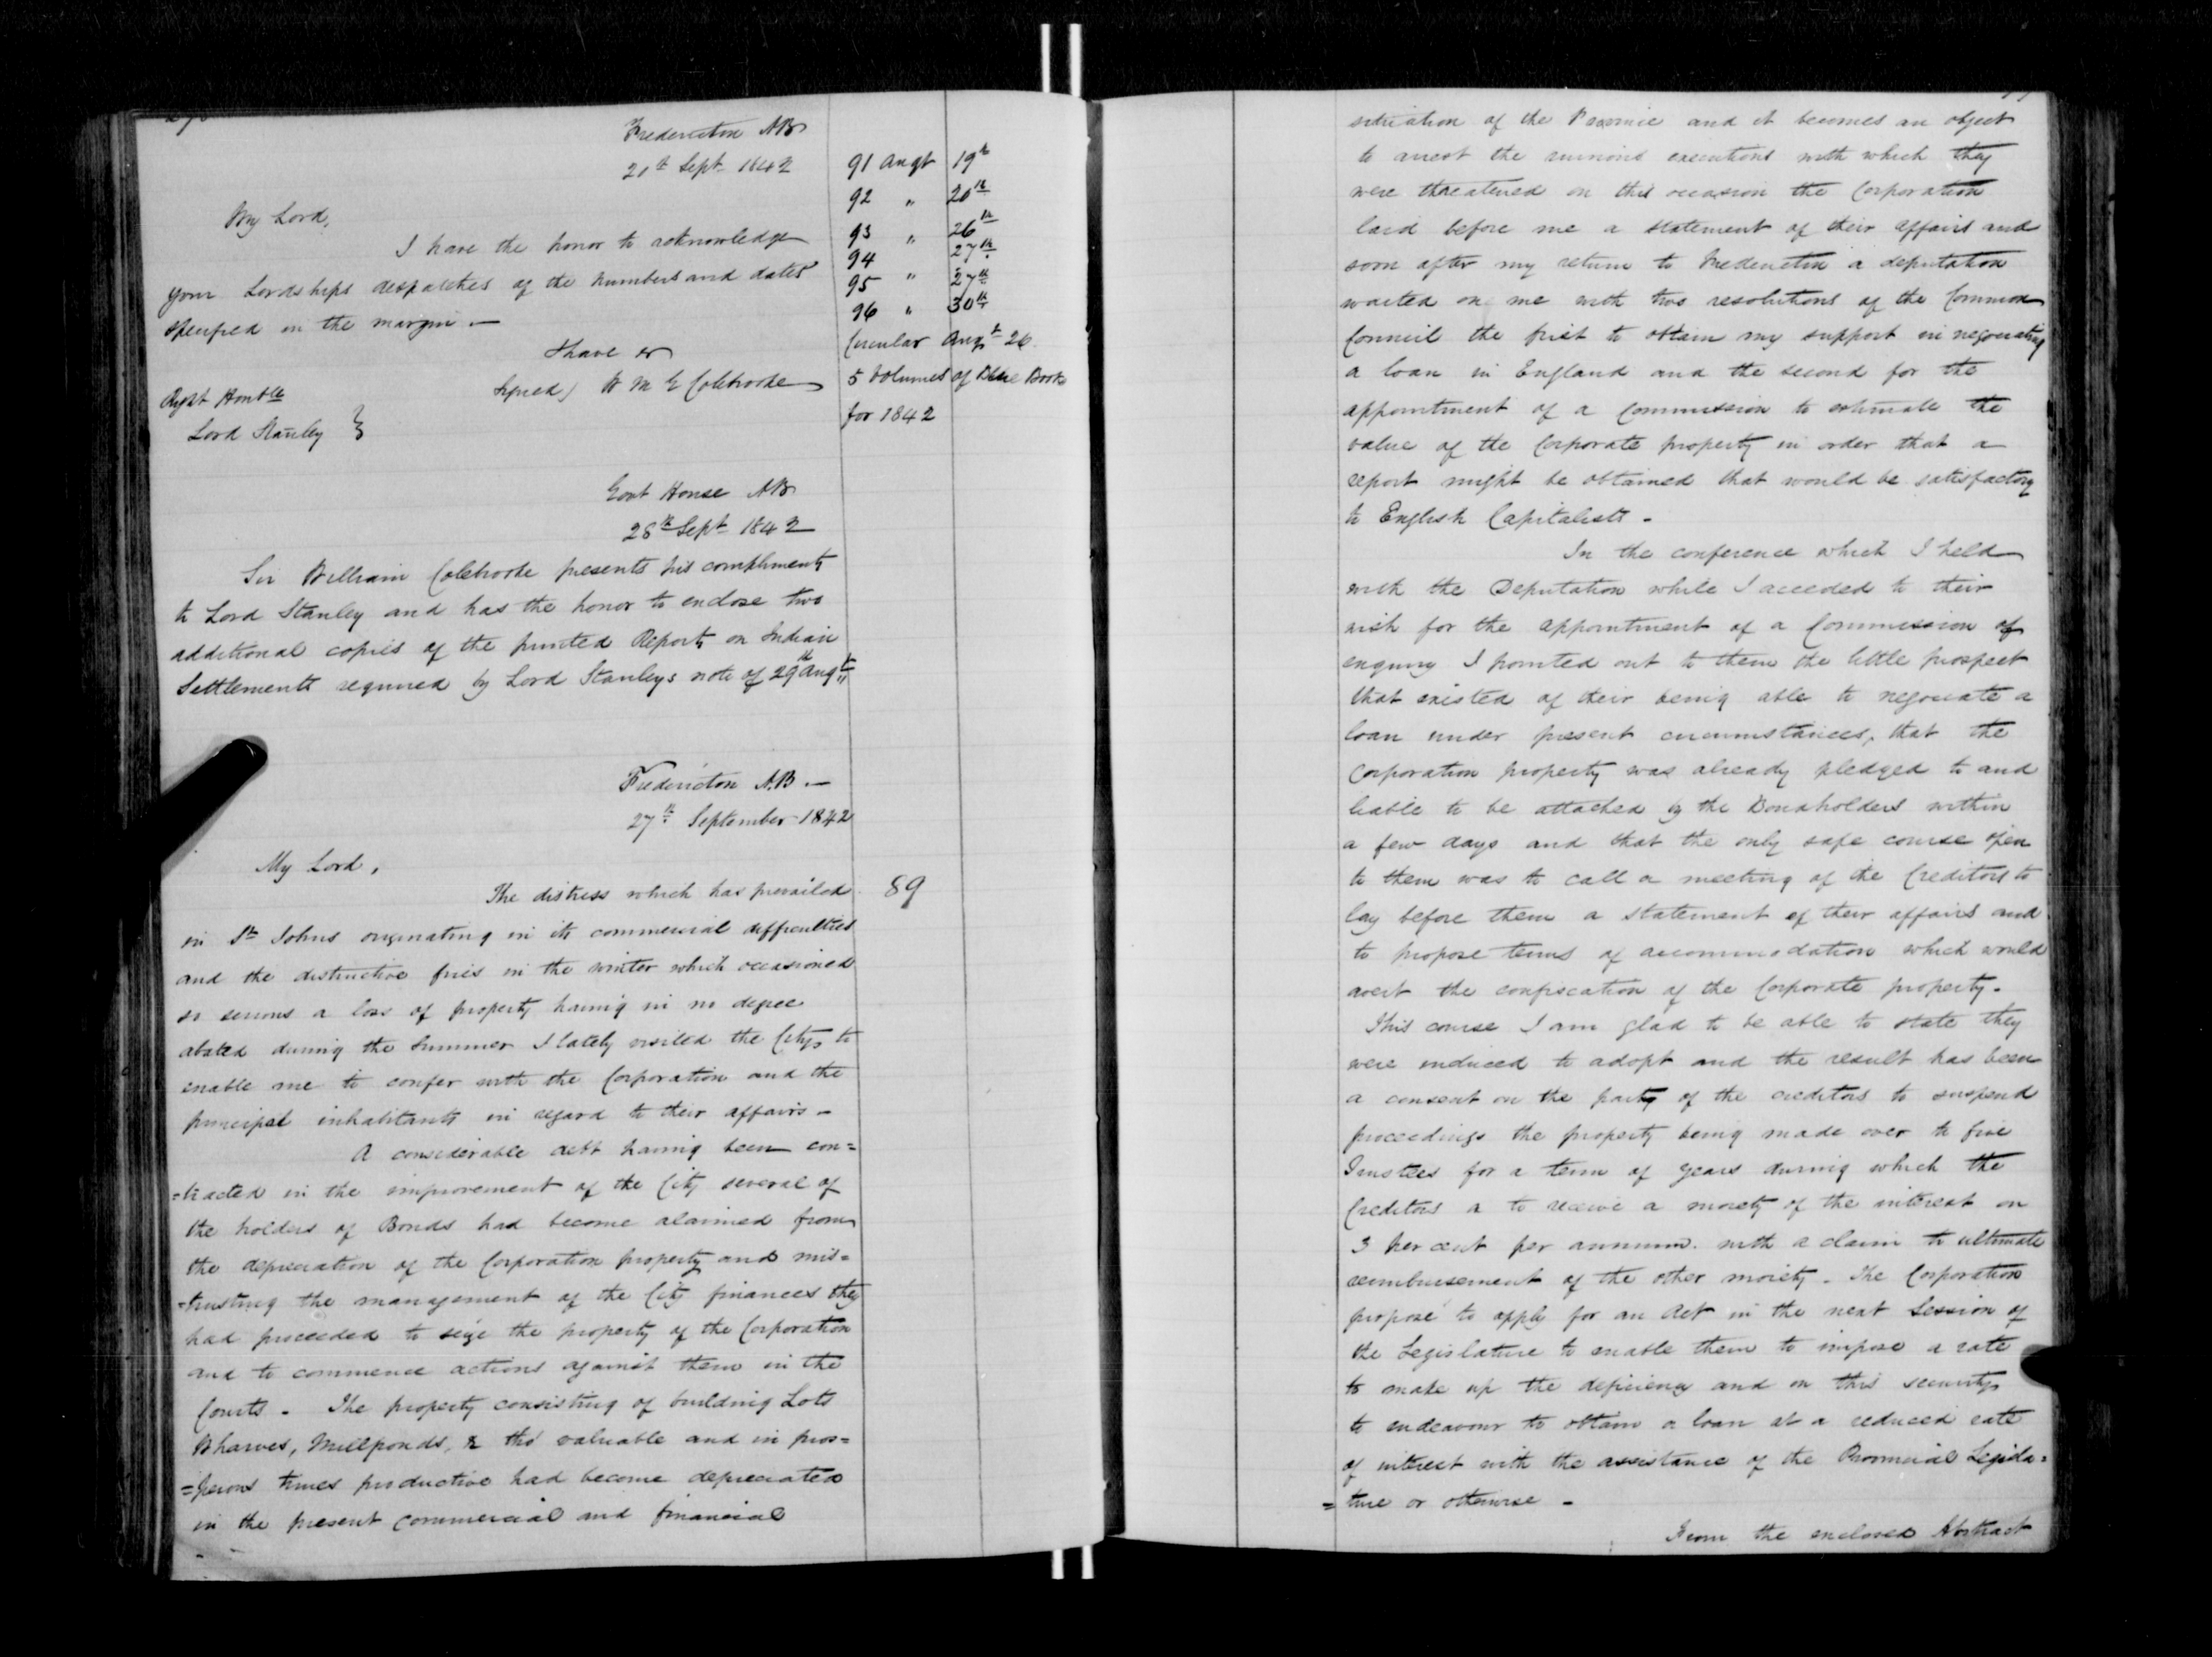 Fredericton NB
21st Sept 1842
My Lord,
I have the honor to acknowledge
your Lordships despatches of the numbers and dates
specified in the margin.—
I have &c
Signed) W M G Colebrooke
Right Honble
Lord Stanley }
91 Augt 19th
92 " 20th
93 " 26th
94 27th
95 " 27th
96 " 30th
Circular Augt 26
5 Volumes of Blue Book
for 1842
Govt House NB
28th Sept 1842
Sir William Colebrooke presents his compliments
to Lord Stanley and has the honor to enclose two
additional copies of the printed Reports on Indian
Settlements required by Lord Stanleys note of 29th Augt
Fredericton N.B.—
27th September 1842
My Lord,
The distress which has prevailed
89
in St Johns originating in its commercial difficulties
and the distructive fires in the winter which occasioned
so serious a loss of property having in no degree
abated during the summer I lately visited the City to
enable me to confer with the Corporation and the
principal inhabitants in regard to their affairs—
A considerable debt having been con=
=tracted in the improvement of the City several of
the holders of Bonds had become alarmed from
the depreciation of the Corporation property and mis=
=trusting the management of the City finances they
had proceeded to seize the property of the Corporation
and to commence actions against them in the
Courts— The property consisting of building Lots
Wharves, Millponds, & tho' valuable and in pros=
=perous times productive had become depreciated
in the present commercial and financial
situation of the Province and it becomes an object
to arrest the ruinous executions with which they
were threatened on this occasion the Corporation
laid before me a statement of their affairs and
soon after my return to Fredericton a deputation
waited on me with two resolutions of the Common
Council the first to obtain my support in negociating
a loan in England and the second for the
appointment of a Commission to estimate the
value of the Corporate property in order that a
report might be obtained that would be satisfactory
to English Capitalists—
In the conference which I held
with the Deputation while I acceded to their
wish for the appointment of a Commission of
enquiry I pointed out to them the little prospect
that existed of their being able to negociate a
loan under present circumstances, that the
Corporation property was already pledged to and
liable to be attached by the Bondholders within
a few days and that the only safe course open
to them was to call a meeting of the Creditors to
lay before them a statement of their affairs and
to propose terms of accommodation which would
avert the confiscation of the Corporate property.
This course I am glad to be able to state they
were induced to adopt and the result has been
a consent on the party of the creditors to suspend
proceedings the property being made over to five
Trustees for a term of years during which the
Creditors a to receive a moiety of the interest on
3 per cent per annum. with a claim to ultimate
reimbursement of the other moiety. The Corporation
propose to apply for an Act in the next Session of
the Legislature to enable them to impose a rate
to make up the deficiency and on this security
to endeavour to obtain a loan at a reduced rate
of interest with the assistance of the Provincial Legisla=
=ture or otherwise—
From the enclosed Abstract